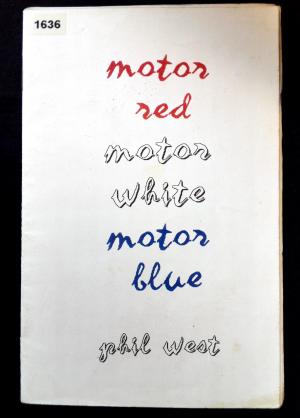 1636
motor
red
motor
white
motor
blue
phil west